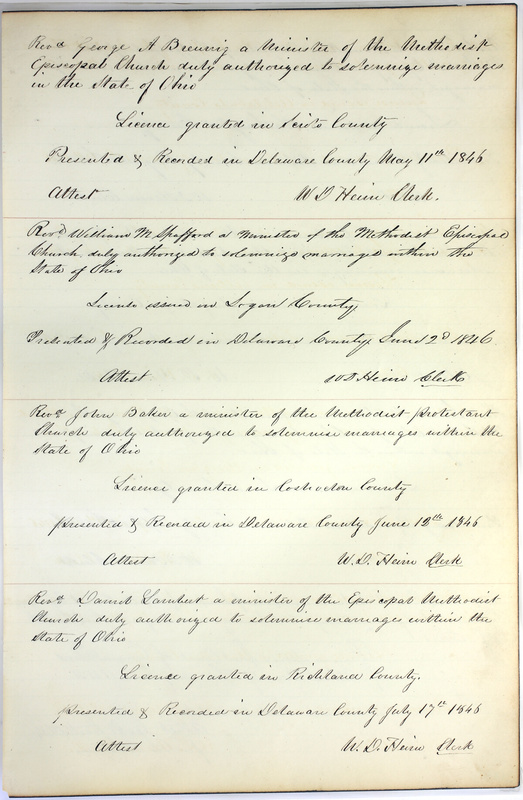 Revd George A Breunig a Minister of the Methodist
Episcopal Church duly authorized to solemnize marriages
in the State of Ohio
Licence granted in Scioto County
Presented & Recorded in Delaware County May 11th 1846
Attest W D Heim Clerk.
Revd William M Spafford a minister of the Methodist Episcopal
Church duly authorized to solemnize marriages within the
State of Ohio
License issued in Logan County
Presented & Recorded in Delaware County June 2d 1846
Attest W D Heim Clerk
Revd John Baker a minister of the Methodist protestant
Church duly authorized to solemnise marriages within the
State of Ohio
Licence granted in Coshocton County
presented & Recorded in Delaware County June 12th 1846
Attest W. D. Heim Clerk
Revd Daniel Lambert a minister of the Episcopal Methodist
Church duly authorized to solemnise marriages within the
State of Ohio
Licence granted in Richland County.
presented & Recorded in Delaware County July 17th 1846
Attest W. D. Heim Clerk